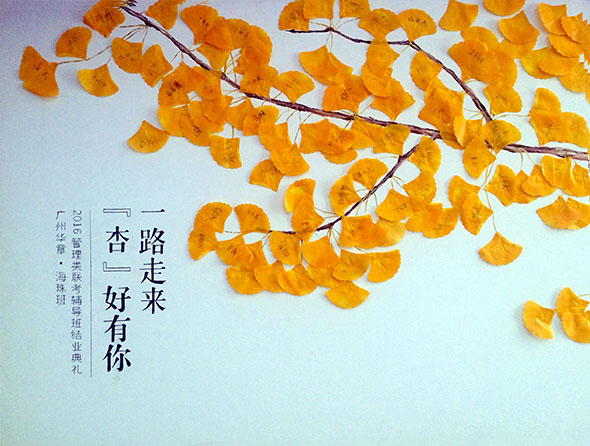 一路走来
『杏』好有你
2016管理类联考辅导班结业典礼
广州华章·海珠班